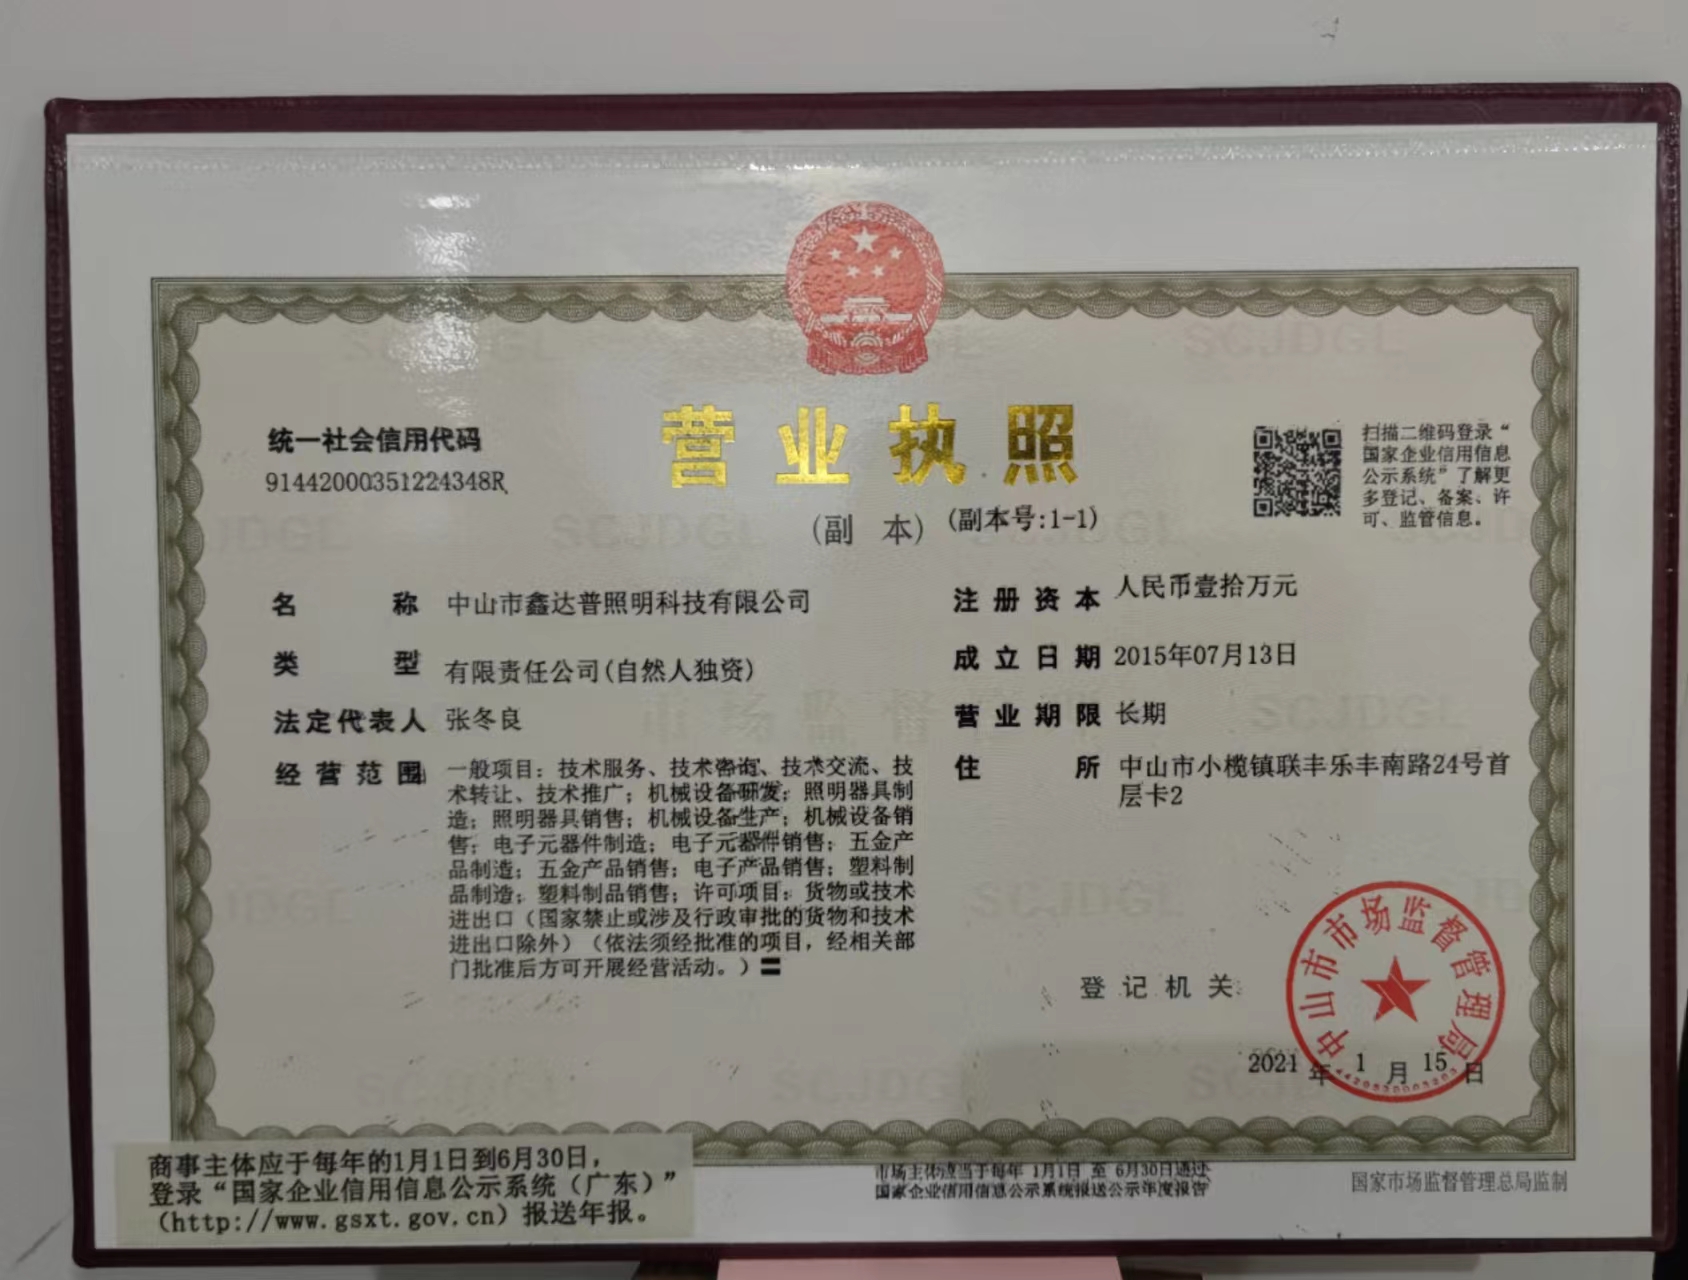 统一社会信用代码
91442000351224348R
营业执照
(副 本) (副本号:1-1)
扫描二维码登录“
国家企业信用信息
公示系统”了解更
多登记、备案、许
可、监管信息。
名 称 中山市鑫达普照明科技有限公司
类 型 有限责任公司(自然人独资)
法定代表人 张冬良
经营范围 一般项目：技术服务、技术咨询、技术交流、技
术转让、技术推广；机械设备研发；照明器具制
造；照明器具销售；机械设备生产；机械设备销
售；电子元器件制造；电子元器件销售；五金产
品制造；五金产品销售；电子产品销售；塑料制
品制造；塑料制品销售；许可项目：货物或技术
进出口（国家禁止或涉及行政审批的货物和技术
进出口除外）（依法须经批准的项目，经相关部
门批准后方可开展经营活动。）〓
注册资本 人民币壹拾万元
成立日期 2015年07月13日
营业期限 长期
住 所 中山市小榄镇联丰乐丰南路24号首
层卡2
登记机关
中山市市场监督管理局
2021 年 1 月 15 日
商事主体应于每年的1月1日到6月30日，
登录“国家企业信用信息公示系统（广东）”
（http://www.gsxt.gov.cn）报送年报。
市场主体应当于每年 1月1日 至 6月30日通过
国家企业信用信息公示系统报送公示年度报告
国家市场监督管理总局监制
SCJDGL
市场监督管理